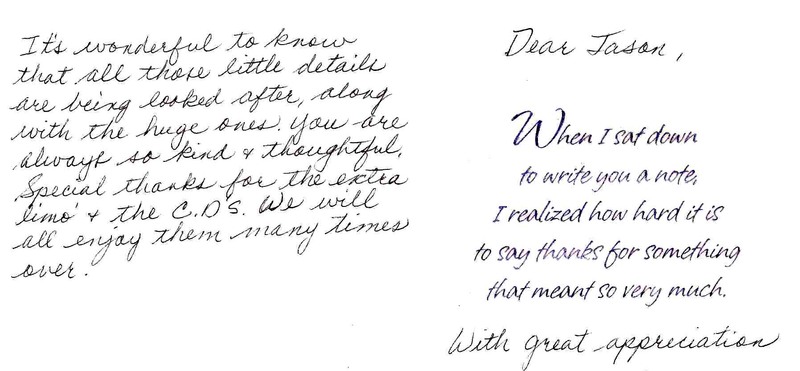 It's wonderful to know
that all those little details
are being looked after, along
with the huge ones. You are
always so kind & thoughtful.
Special thanks for the extra
limo' & the C.D'S. We will
all enjoy them many times
over.
Dear Jason,
When I sat down
to write you a note,
I realized how hard it is
to say thanks for something
that meant so very much.
With great appreciation